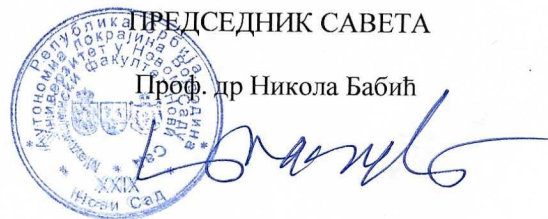 ПРЕДСЕДНИК САВЕТА
Проф. др Никола Бабић
Република Србија
Аутономна покрајина Војводина
Универзитет у Новом Саду
факултет Нови Сад
XXIX
Нови Сад